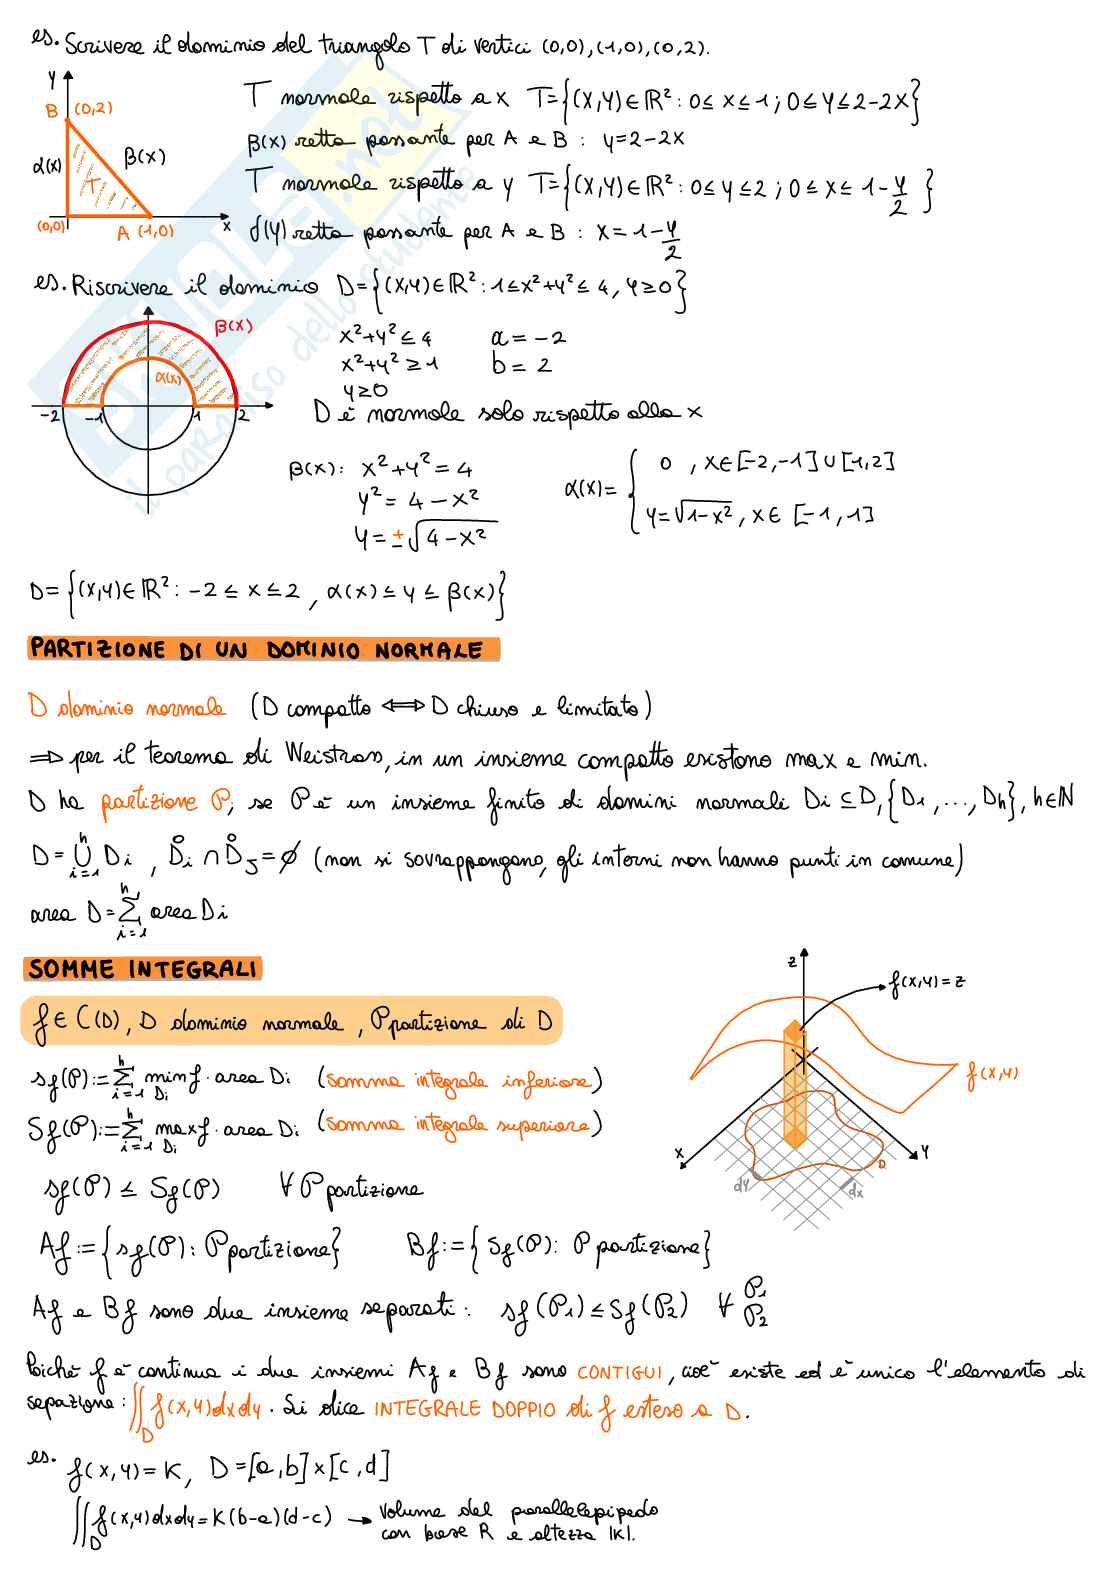 es. Scrivere il dominio del triangolo T di vertici (0,0),(1,0),(0,2).
Y
B (0,2)
α(x)
β(x)
T
(0,0)
A (1,0)
x
T normale rispetto a x T={(X,Y)∈ℝ²: 0≤ x≤1; 0≤Y≤2-2X}
β(x) retta passante per A e B: y=2-2x
T normale rispetto a y T={(X,Y)∈ℝ²: 0≤y≤2; 0≤x≤ 1-Y/2}
δ(Y) retta passante per A e B: X=1-Y/2
es. Riscrivere il dominio D={(X,Y)∈ℝ²: 1≤x²+y²≤ 4, Y≥0}
β(X)
α(x)
-2 -1 1 2
x²+y²≤4 a=-2
x²+y²≥1 b=2
y≥0
D è normale solo rispetto alla x
β(x): x²+y²=4
y²=4-x²
y=±√4-x²
α(x)= { 0 , x∈[-2,-1]∪[1,2]
y=√1-x², x∈ [-1,1]
D={(x,y)∈ℝ²: -2≤x≤2, α(x)≤y≤β(x)}
PARTIZIONE DI UN DOMINIO NORMALE
D dominio normale (D compatto ⟺ D chiuso e limitato)
⇒ per il teorema di Weistrass, in un insieme compatto esistono max e min.
D ha partizione P, se P è un insieme finito di domini normali Di ⊆D, {D1, ..., Dh}, h∈ℕ
D= h ∪ i=1 Di , D̊i ∩ D̊j=∅ (non si sovrappongono, gli interni non hanno punti in comune)
area D= h Σ i=1 area Di
SOMME INTEGRALI
f∈ C(D), D dominio normale, P partizione di D
sf(P):= h Σ i=1 min Di f· area Di (somma integrale inferiore)
Sf(P):= h Σ i=1 max Di f· area Di (somma integrale superiore)
z
f(x,y)=z
f(x,y)
x
Y
D
dy
dx
sf(P)≤ Sf(P) ∀ P partizione
Af:={sf(P): P partizione} Bf:={Sf(P): P partizione}
Af e Bf sono due insieme separati: sf(P1)≤Sf(P2) ∀ P1 P2
Poiché f è continua i due insiemi Af e Bf sono CONTIGUI, cioè esiste ed è unico l'elemento di
sepazione: ∬D f(x,y)dxdy. Si dice INTEGRALE DOPPIO di f esteso a D.
es. f(x,y)=K, D=[a,b]×[c,d]
∬D f(x,y)dxdy=K(b-a)(d-c) → Volume del parallelepipedo
con base R e altezza |K|.